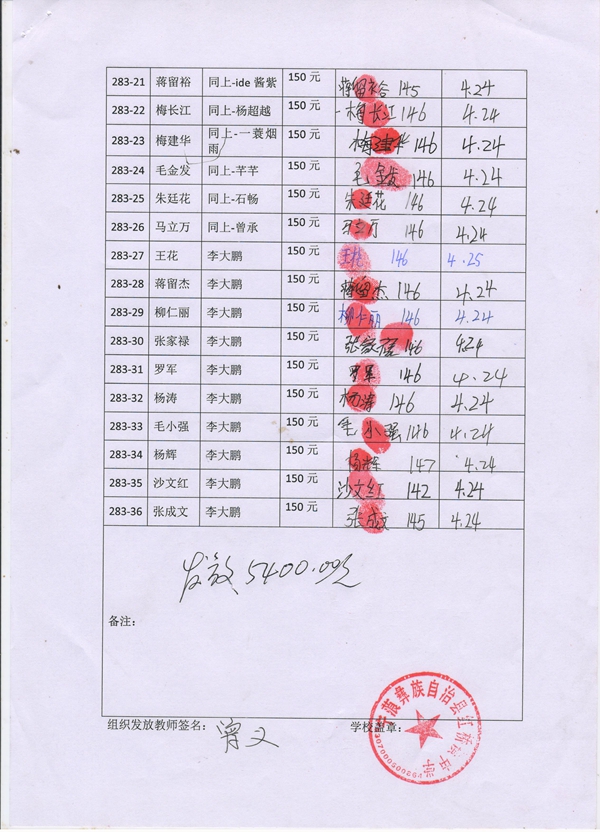 283-21 蒋留裕 同上-ide 酱紫 150 元 蒋留裕 145 4.24
283-22 梅长江 同上-杨超越 150 元 梅长江 146 4.24
283-23 梅建华 同上-一蓑烟雨 150 元 梅建华 146 4.24
283-24 毛金发 同上-芊芊 150 元 毛金发 146 4.24
283-25 朱廷花 同上-石畅 150 元 朱廷花 146 4.24
283-26 马立万 同上-曾承 150 元 马立万 146 4.24
283-27 王花 李大鹏 150 元 王花 146 4.25
283-28 蒋留杰 李大鹏 150 元 蒋留杰 146 4.24
283-29 柳仁丽 李大鹏 150 元 柳仁丽 146 4.24
283-30 张家禄 李大鹏 150 元 张家禄 146 4.24
283-31 罗军 李大鹏 150 元 罗军 146 4.24
283-32 杨涛 李大鹏 150 元 杨涛 146 4.24
283-33 毛小强 李大鹏 150 元 毛小强 146 4.24
283-34 杨辉 李大鹏 150 元 杨辉 147 4.24
283-35 沙文红 李大鹏 150 元 沙文红 142 4.24
283-36 张成文 李大鹏 150 元 张成文 145 4.24
发放 5400.00元
备注：
组织发放教师签名： 曾义
学校盖章：
宁蒗彝族自治县
中学